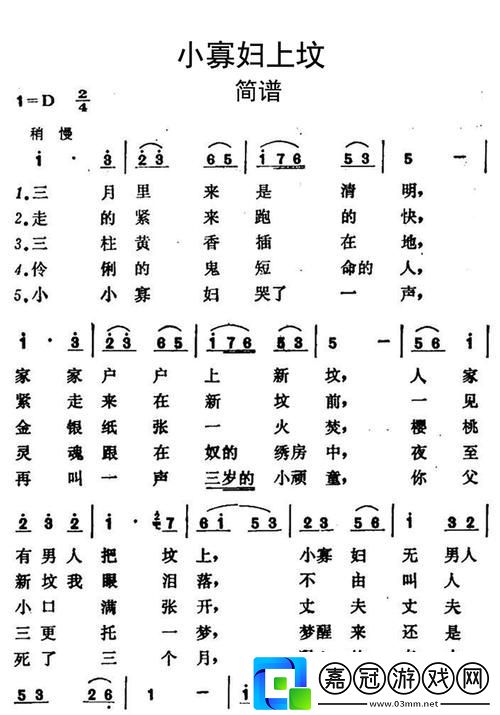 小寡妇上坟
简谱
1=D 2/4
稍 慢
1 · 3 | 2 3 6 5 | 1 7 6 5 3 | 5 — |
1.三 月 里 来 是 清 明,
2.走 的 紧 来 跑 的 快,
3.三 柱 黄 香 插 在 地,
4.伶 俐 的 鬼 短 命的 人,
5.小 小 寡 妇 哭 了 一 声,
1 · 3 | 2 3 6 5 | 1 7 6 5 3 | 5 — | 5 6 1 |
家 家 户 户 上 新 坟, 人 家
紧 走 来 在 新 坟 前, 一 见
金 银 纸 张 一 火 焚, 樱 桃
灵 魂 跟 在 奴 的 绣 房 中, 夜 至
再 叫 一 声 三岁的 小 顽 童, 你 父
2 3 2 3 | 2 1 2 7 | 6 1 5 3 | 5 3 5 6 | 1 3 2 |
有 男 人 把 坟 上, 小 寡 妇 无 男人
新 坟 我 眼 泪 落, 不 由 叫 人
小 口 满 张 开, 丈 夫 丈 夫
三 更 托 一 梦, 梦 醒 来 还 是
死 了 三 个 月,
5 3 2 6 | 1 — | 1
嘉冠游戏网
www.03mm.net